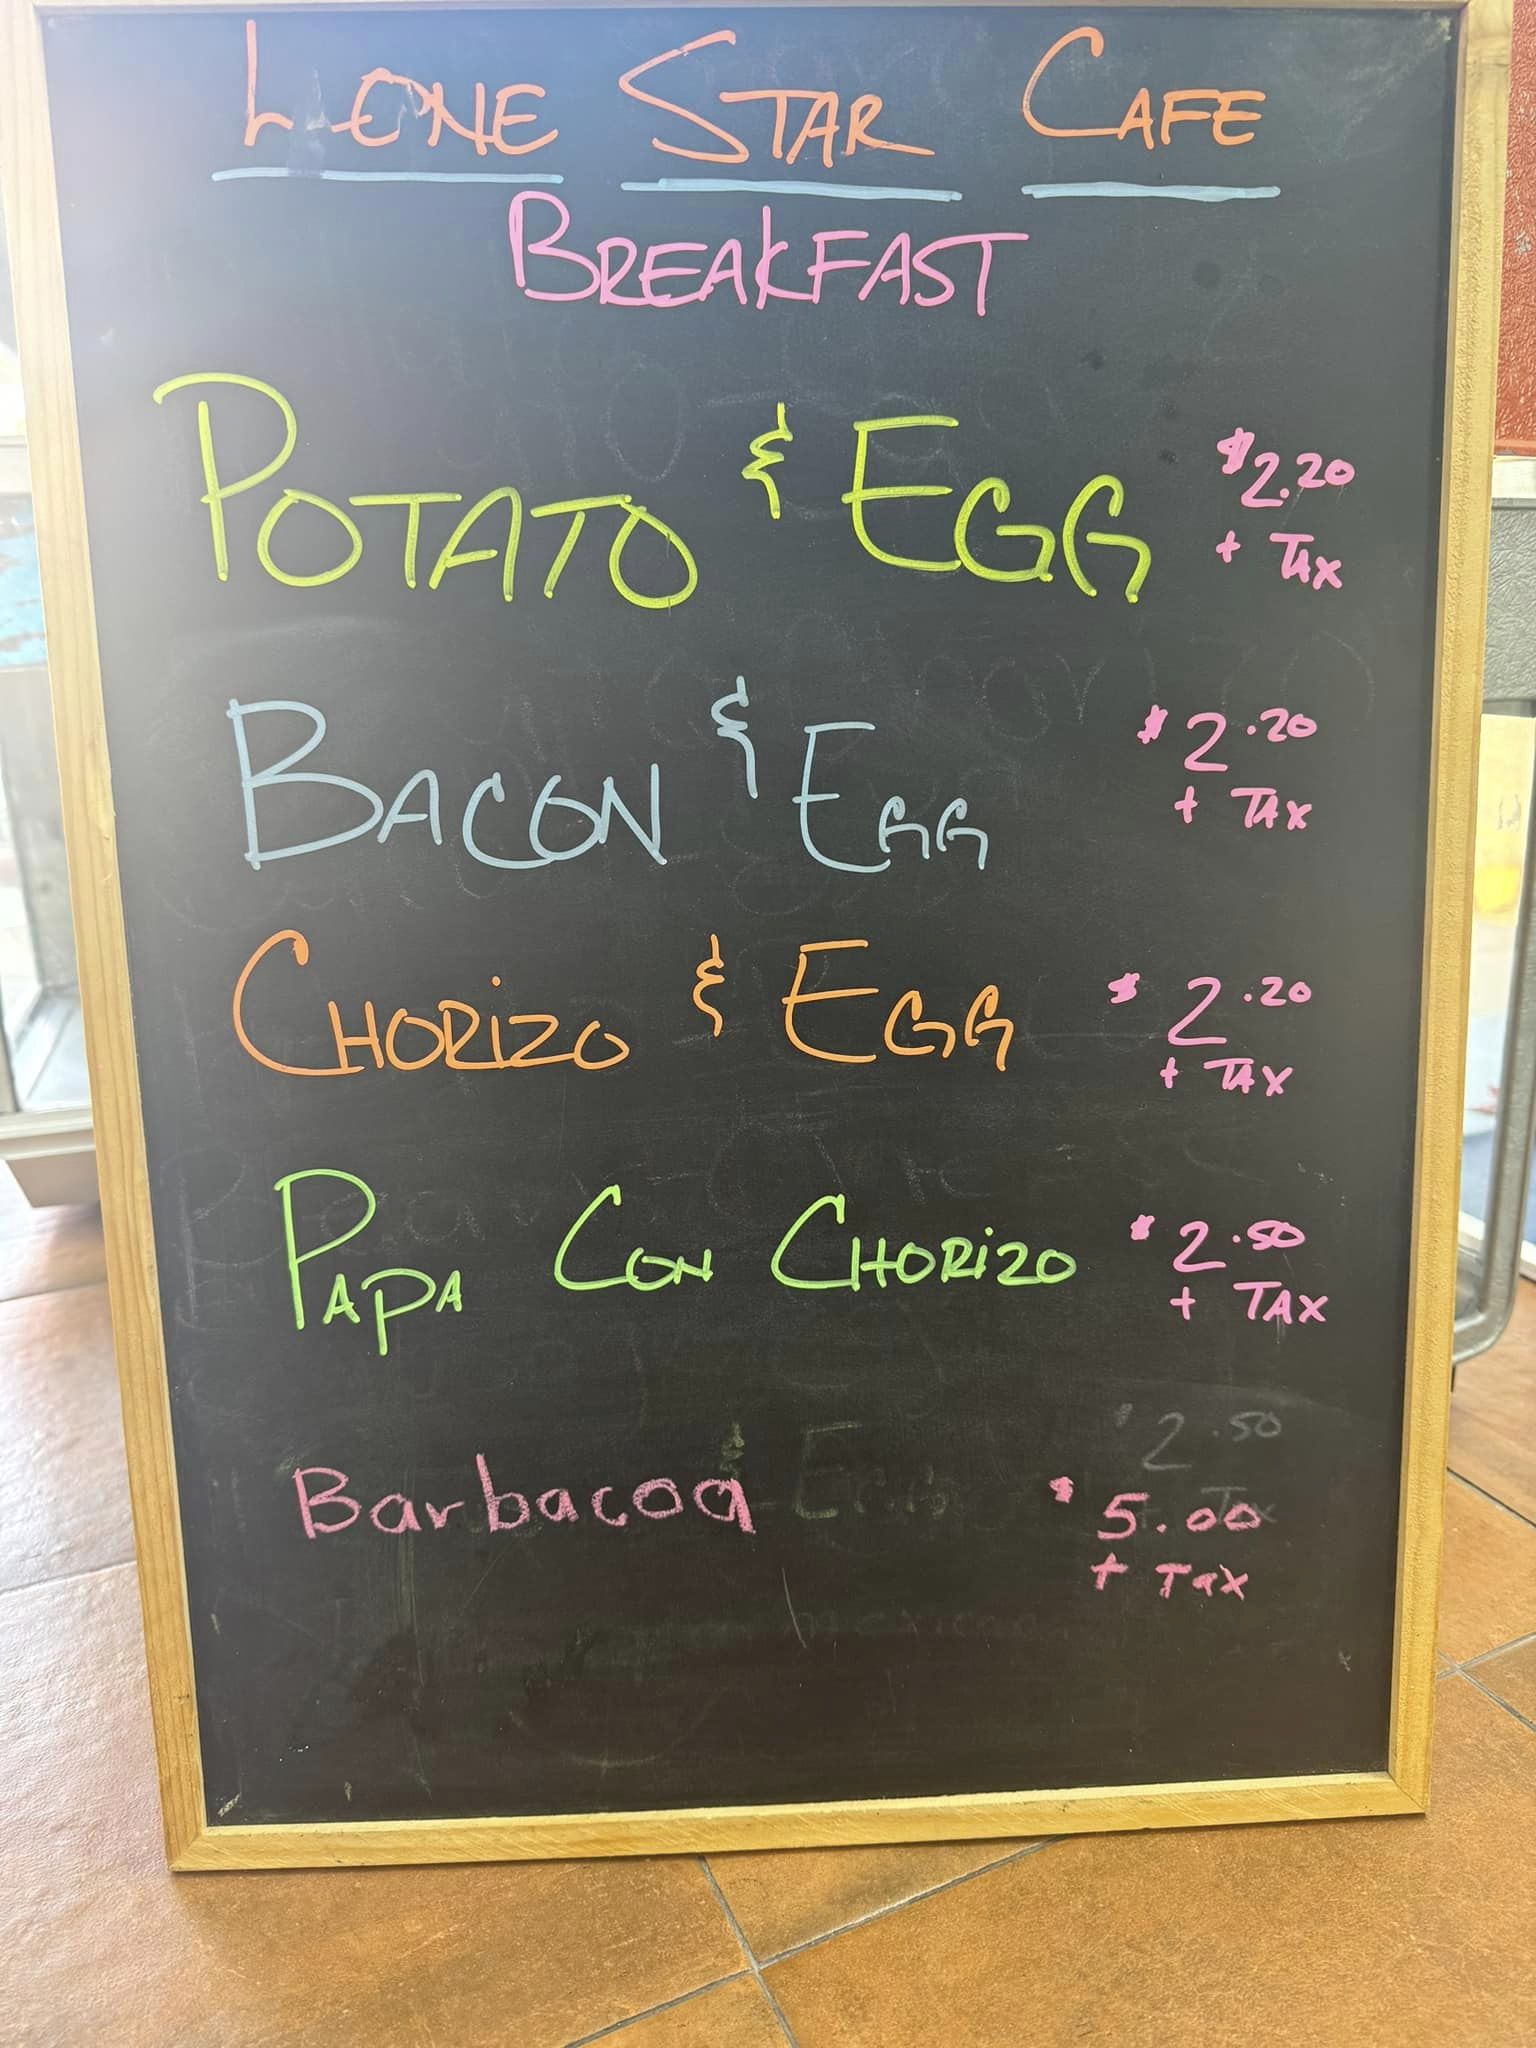 LONE STAR CAFE
BREAKFAST
POTATO & EGG $2.20
+ TAX
BACON & EGG $2.20
+ TAX
CHORIZO & EGG $2.20
+ TAX
PAPA CON CHORIZO $2.50
+ TAX
$2.50
Barbacoa & EGG $5.00
+ Tax